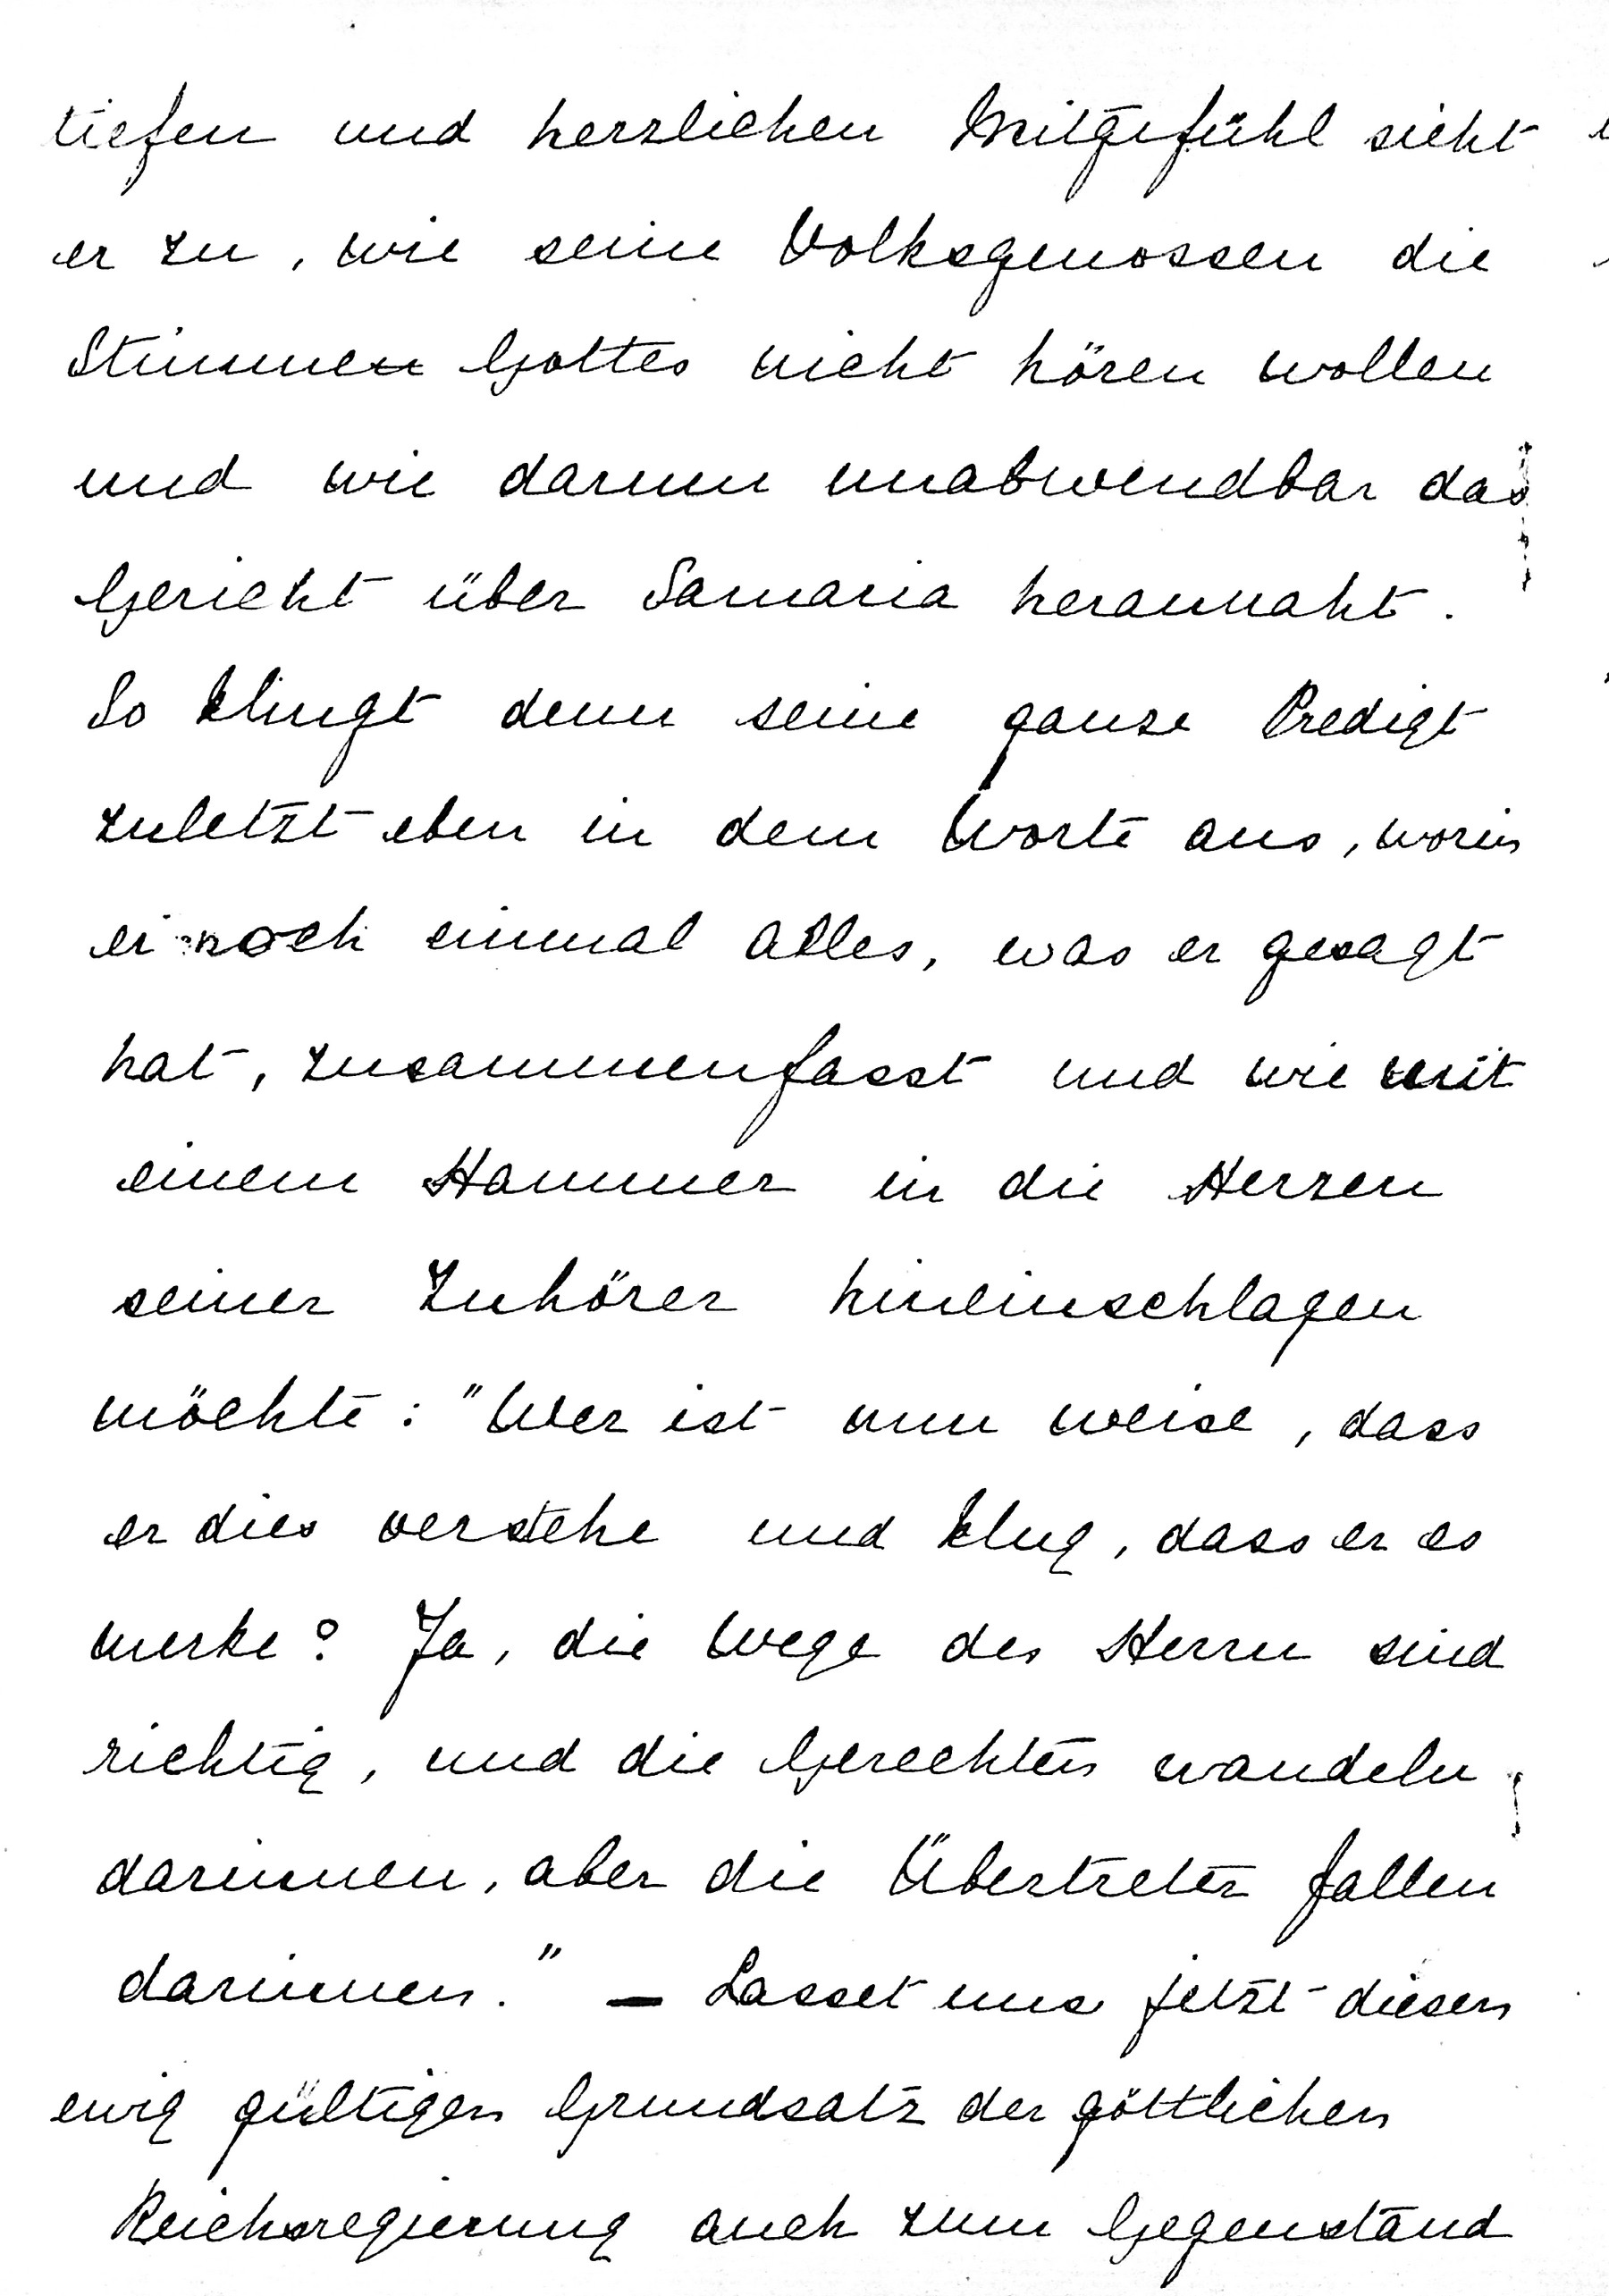 tiefen und herzlichen Mitgefühl sieht
er zu, wie seine Volksgenossen die
Stimmen Gottes nicht hören wollen
und wie darum unabwendbar das
Gericht über Samaria herannaht.
So klingt denn seine ganze Predigt
zuletzt eben in dem Worte aus, worin
er noch einmal alles, was er gesagt
hat, zusammenfasst und wie mit
einem Hammer in die Herzen
seiner Zuhörer hineinschlagen
möchte: "Wer ist nun weise, dass
er dies verstehe und klug, dass er es
merke? Ja, die Wege des Herrn sind
richtig, und die Gerechten wandeln
darinnen, aber die Übertreter fallen
darinnen." – Lasset uns jetzt diesen
ewig gültigen Grundsatz der göttlichen
Reichsregierung auch zum Gegenstand